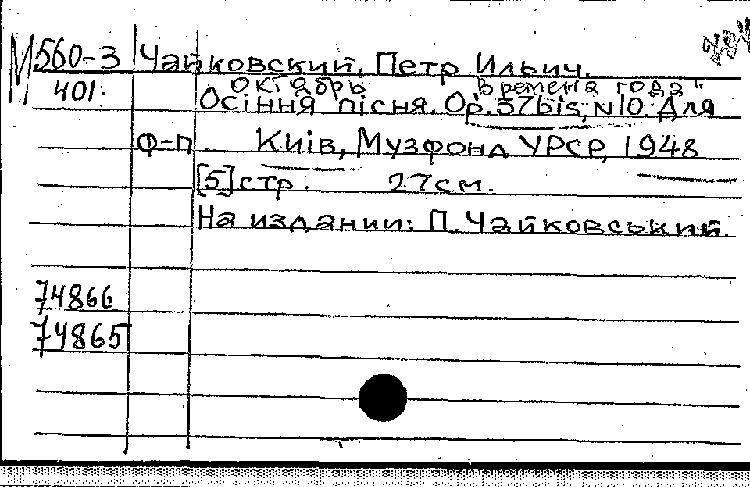 М560-3 Чайковский, Петр Ильич.
октябрь "Времена года"
401. Осіння пісня. Ор. 37bis, N10. Для
ф-п Київ, Музфонд УРСР, 1948
[5] стр. 27см.
На издании: П. Чайковський.
74866
74865